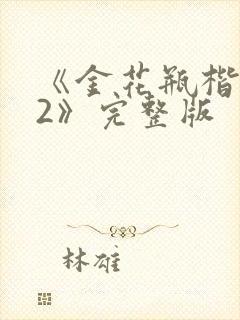 《金花瓶楷
2》完整版
林雄